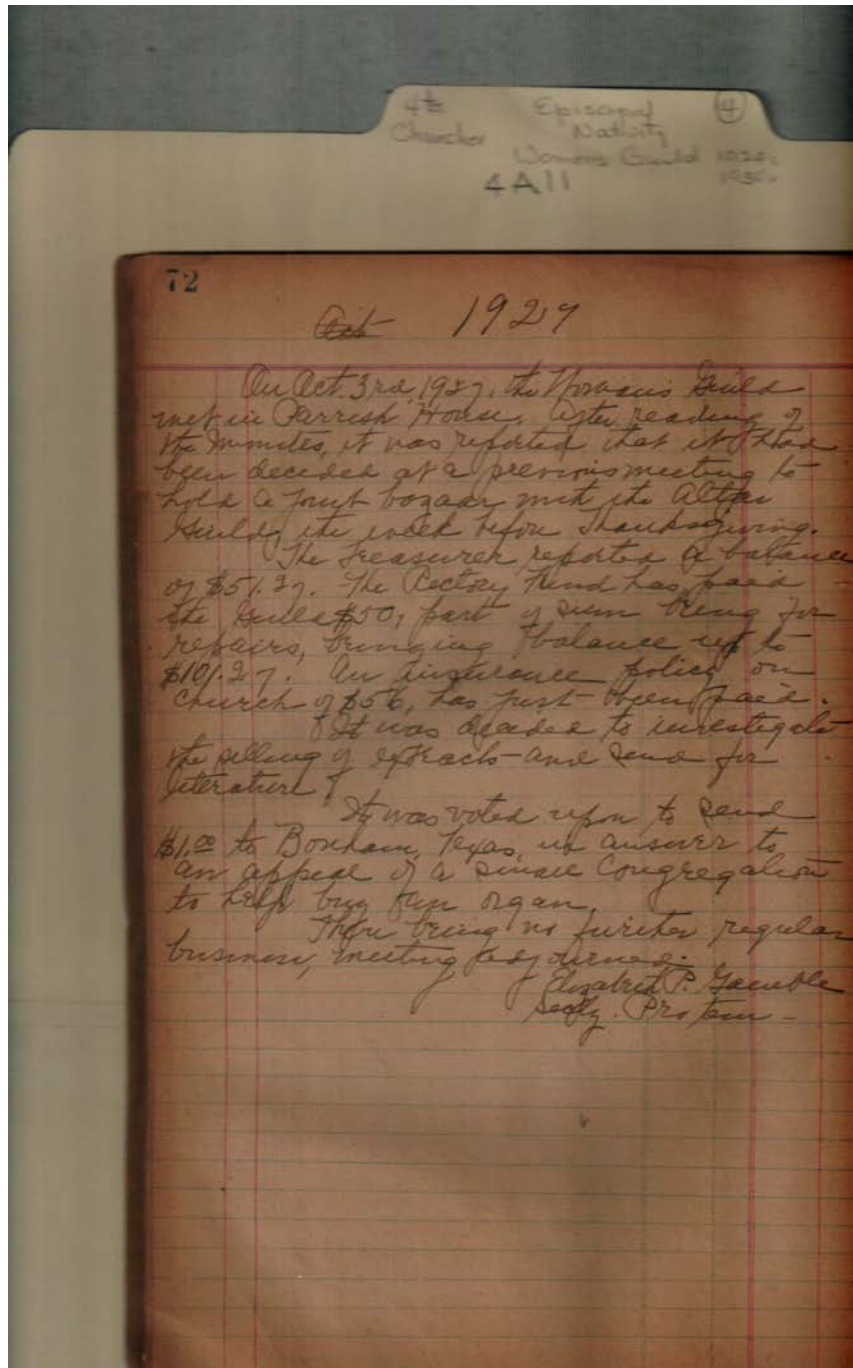 4th Episcopal 4
Churches Nativity
Womens Guild 1920s
4A11 1930s
72
Oct 1927
On Oct. 3rd, 1927, the Woman's Guild
met in Parrish House. After reading of
the minutes, it was reported that it had
been decided at a previous meeting to
hold a joint bazaar with the Altar
Guild, the week before Thanksgiving.
The Treasurer reported a balance
of $51.27. The Rectory Fund has paid
the Guild $50, part of sum being for
repairs, bringing balance up to
$101.27. An insurance policy on
Church of $56, has just been paid.
It was decided to investigate
the selling of extracts and send for
literature.
It was voted upon to send
$1.00 to Bonham, Texas, in answer to
an appeal of a small Congregation
to help buy an organ.
There being no further regular
business, meeting adjourned.
Elizabeth P. Gamble
Sec'ty. Pro tem -